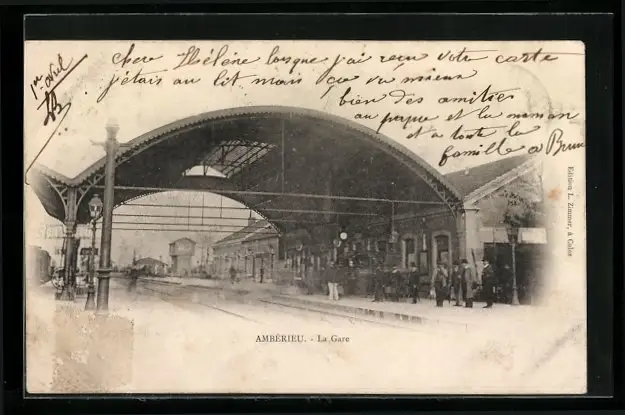 1er Avril
Chere Hélène lorsque j'ai reçu votre carte
j'étais au lit mais j'ai vu mieux
bien des amitiés
au papa et la maman
et a toute la
famille a Brun
Edition L. Zimmer, à Culoz
AMBÉRIEU. - La Gare